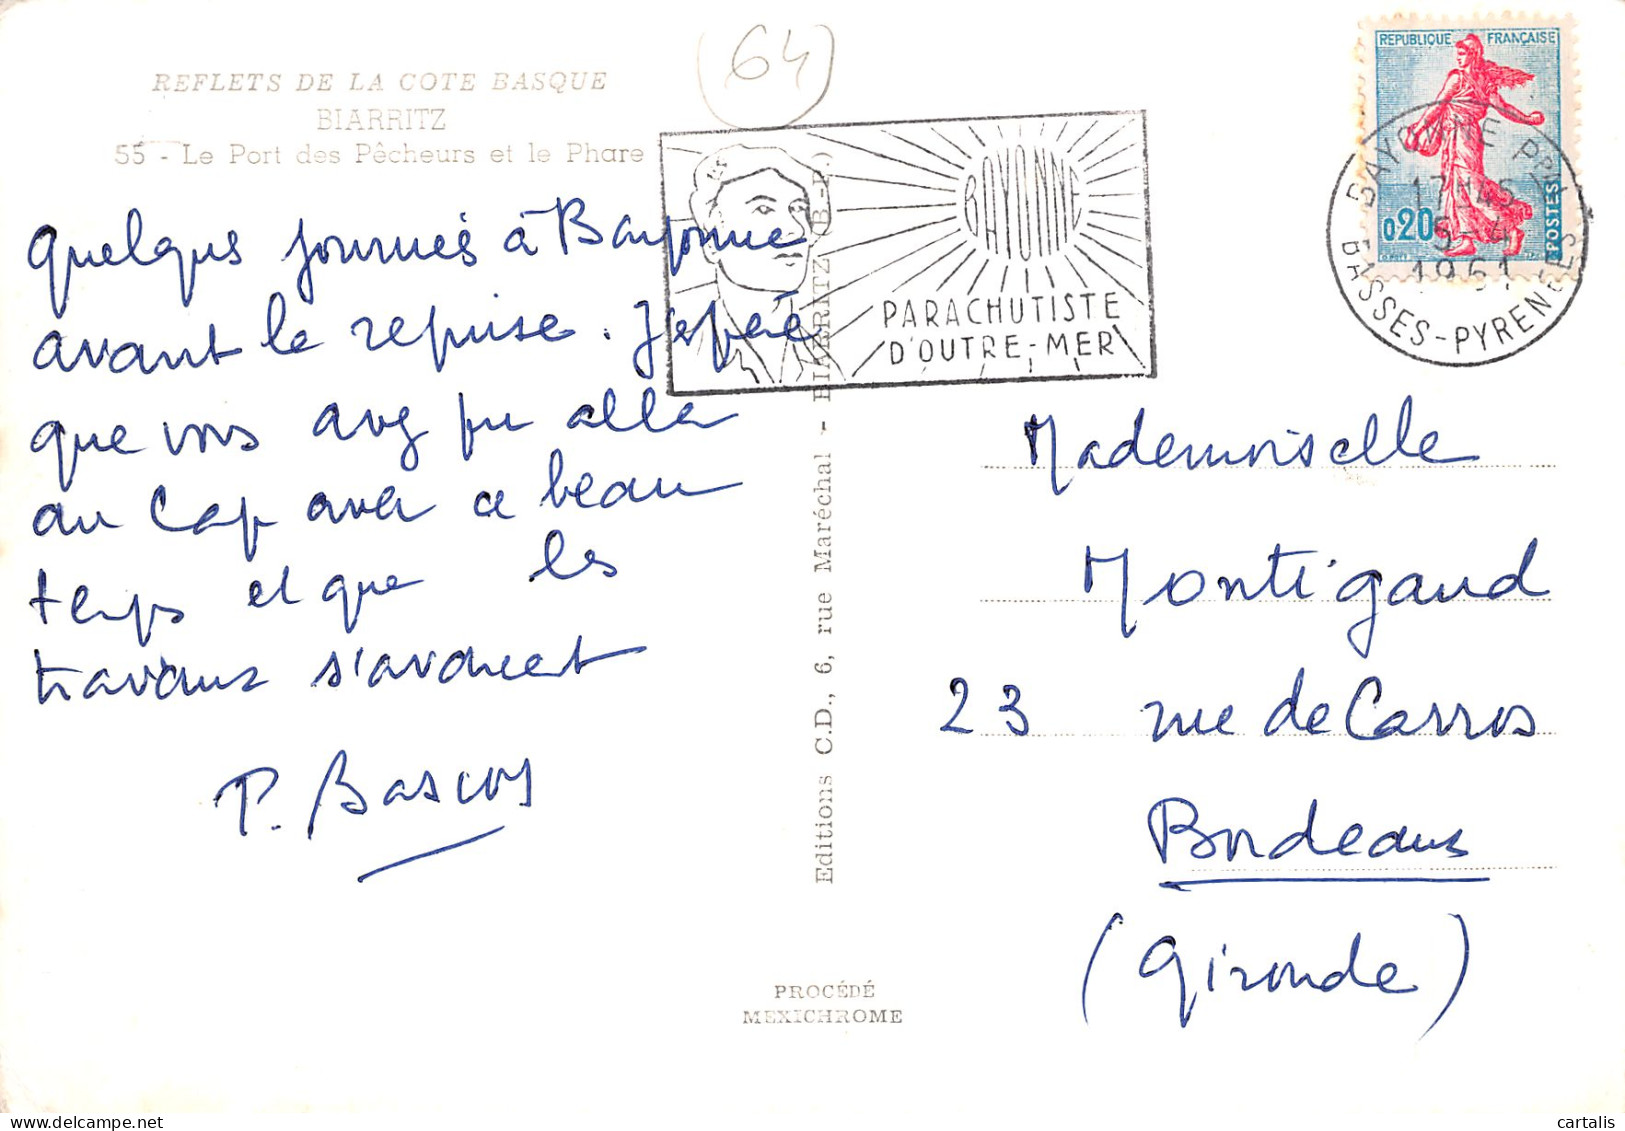 (64)
REFLETS DE LA COTE BASQUE
BIARRITZ
55 - Le Port des Pêcheurs et le Phare
quelques journées à Bayonne
avant la reprise. J'espère
que vous avez pu aller
au Cap avec ce beau
temps et que les
travaux s'avancent
P. Bascou
Editions C.D., 6, rue Maréchal - BIARRITZ (B.-P.)
PROCÉDÉ
MEXICHROME
BAYONNE
PARACHUTISTE
D'OUTRE-MER
REPUBLIQUE FRANÇAISE
0,20
POSTES
BAYONNE Ppal
17H45
5-4
1961
BASSES-PYRENEES
Mademoiselle
Montigaud
23 rue de Carros
Bordeaux
(Gironde)
cartalis